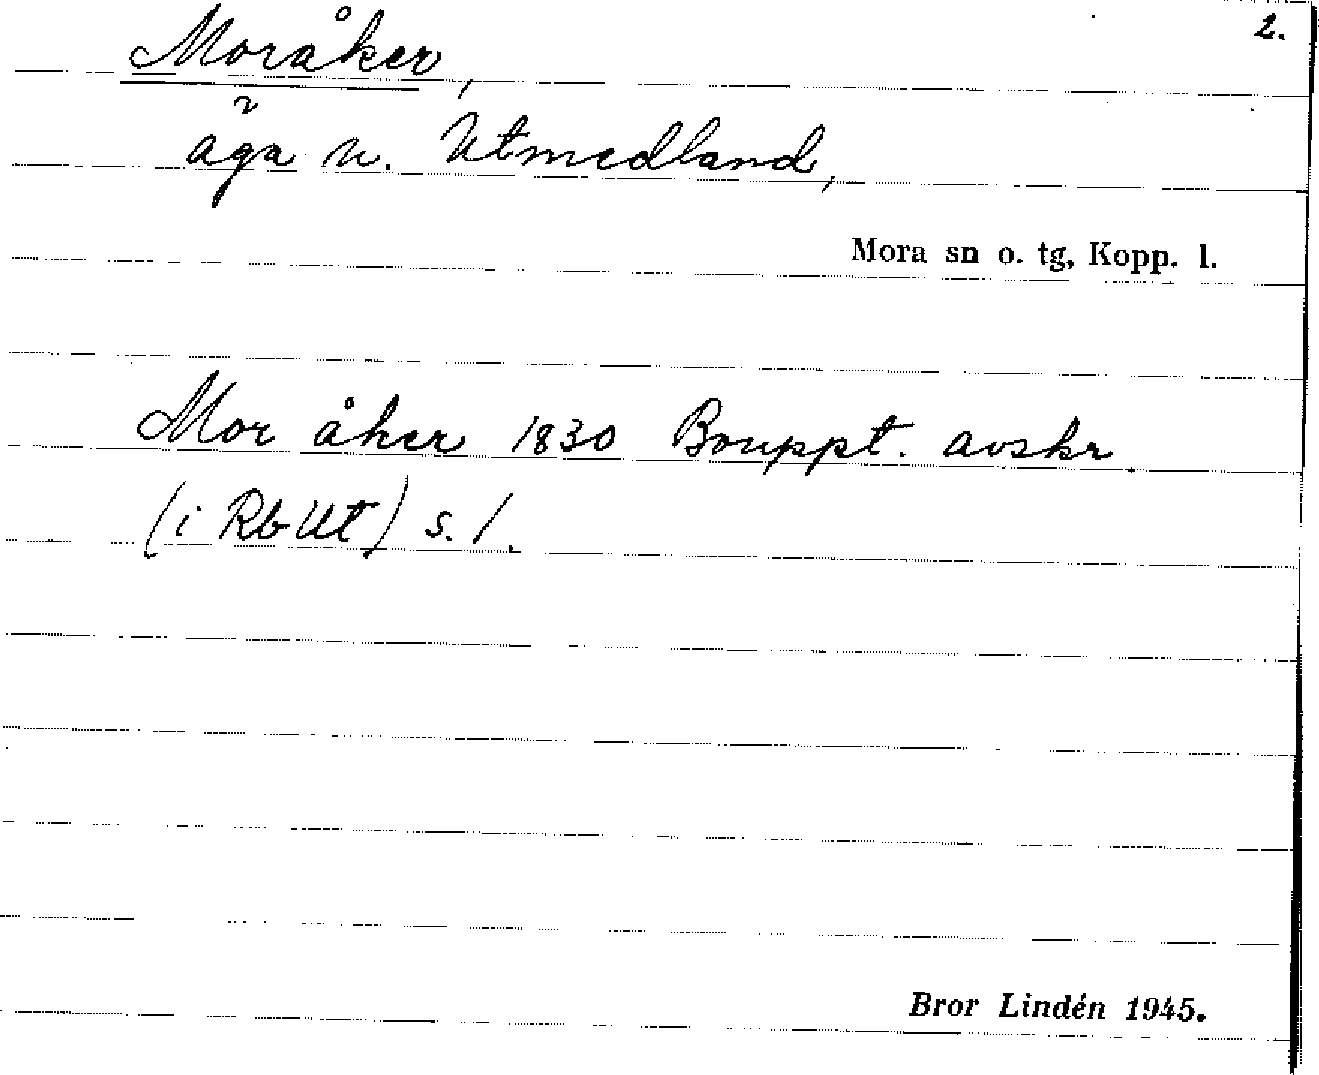 2.
Moråker,
äga u. Utmedland,
Mora sn o. tg, Kopp. l.
Mor åker 1830 Bouppt. avskr.
(i Rb Ut) s. 1.
Bror Lindén 1945.